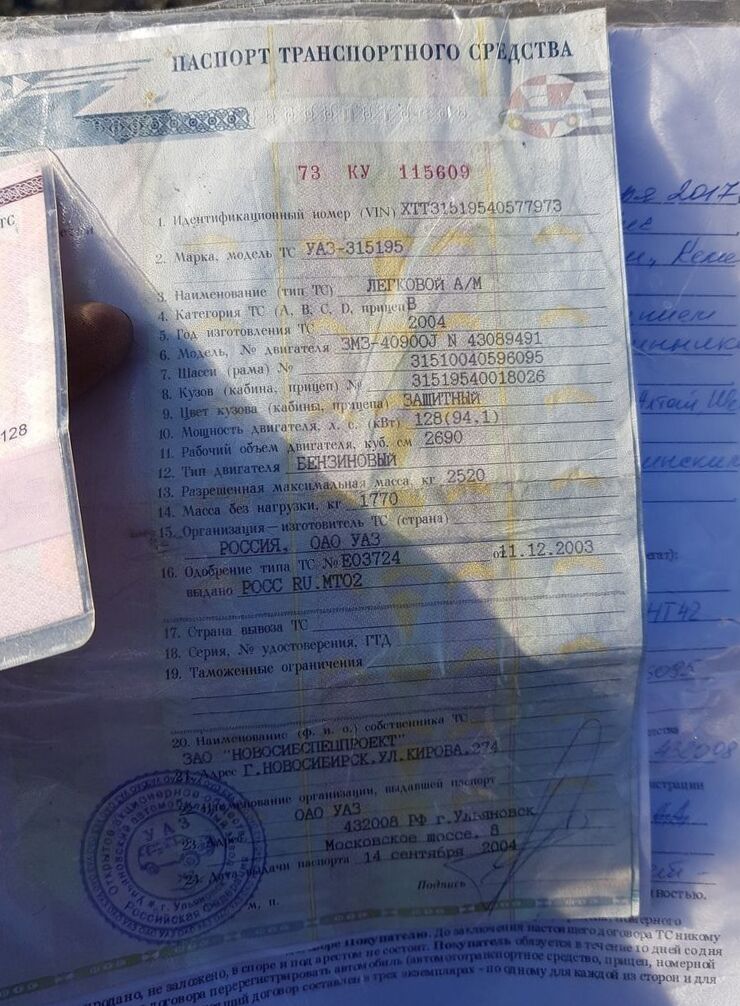 ПАСПОРТ ТРАНСПОРТНОГО СРЕДСТВА
73 КУ 115609
1. Идентификационный номер (VIN) XTT31519540577973
2. Марка, модель ТС УАЗ-315195
3. Наименование (тип ТС) ЛЕГКОВОЙ А/М
4. Категория ТС (А, В, С, D, прицеп) В
5. Год изготовления ТС 2004
6. Модель, № двигателя ЗМЗ-40900J N 43089491
7. Шасси (рама) № 31510040596095
8. Кузов (кабина, прицеп) № 31519540018026
9. Цвет кузова (кабины, прицепа) ЗАЩИТНЫЙ
10. Мощность двигателя, л. с. (кВт) 128(94.1)
11. Рабочий объем двигателя, куб. см 2690
12. Тип двигателя БЕНЗИНОВЫЙ
13. Разрешенная максимальная масса, кг 2520
14. Масса без нагрузки, кг 1770
15. Организация—изготовитель ТС (страна)
РОССИЯ, ОАО УАЗ
16. Одобрение типа ТС № Е03724 от 11.12.2003
выдано РОСС RU.МТ02
17. Страна вывоза ТС
18. Серия, № удостоверения, ГТД
19. Таможенные ограничения
20. Наименование (ф. и. о.) собственника ТС
ЗАО "НОВОСИБСПЕЦПРОЕКТ"
21. Адрес Г.НОВОСИБИРСК.УЛ.КИРОВА.274
22. Наименование организации, выдавшей паспорт
ОАО УАЗ
432008 РФ г.Ульяновск
23. Адрес Московское шоссе, 8
24. Дата выдачи паспорта 14 сентября 2004
Подпись
М. П.
УАЗ
Российская Федерация
ТС
128
2017
432008
НТ42
Покупателю. До заключения настоящего договора ТС никому
продано, не заложено, в споре и под арестом не состоит. Покупатель обязуется в течение 10 дней со дня
договора перерегистрировать автомобиль (автомототранспортное средство, прицеп, номерной
договор составлен в трех экземплярах - по одному для каждой из сторон и для